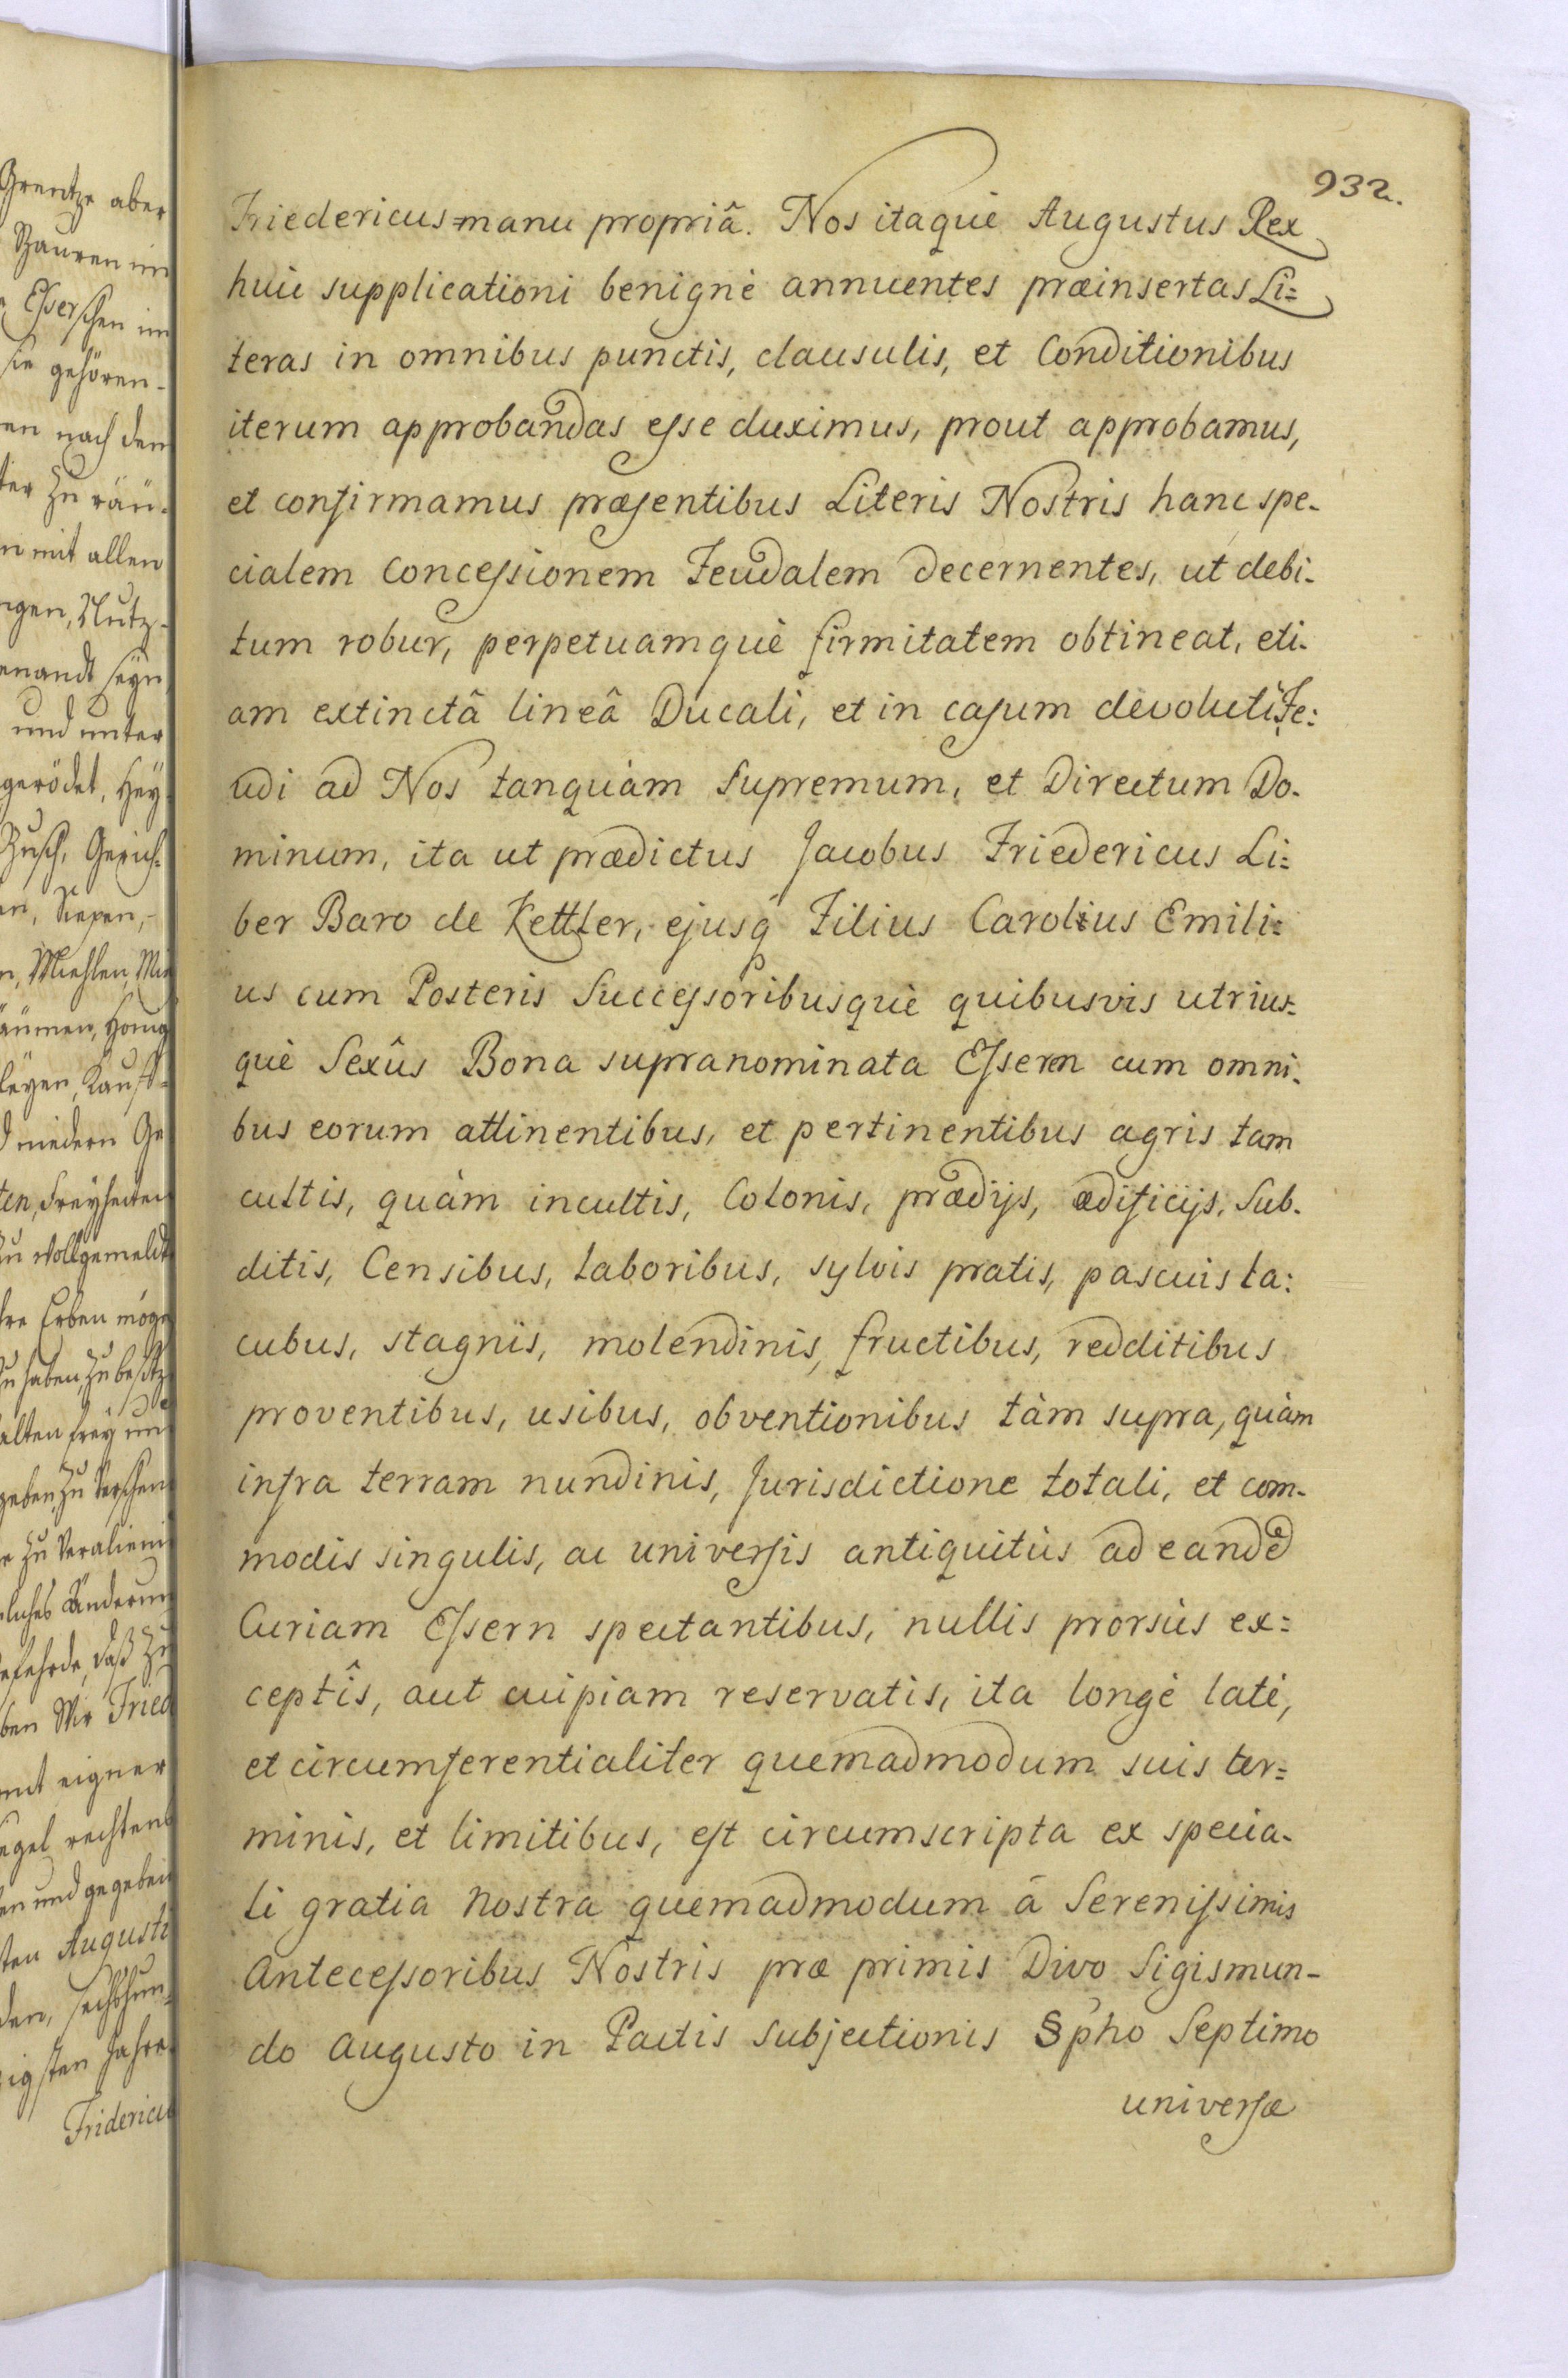 932.
Friedericus=manu propriâ. Nos itaquè Augustus Rex
huic supplicationi benignè annuentes præinsertas Li=
teras in omnibus punctis, clausulis, et Conditionibus
iterum approbandas esse duximus, prout approbamus,
et confirmamus præsentibus Literis Nostris hanc spe-
cialem Concessionem Feudalem decernentes, ut debi-
tum robur, perpetuamquè firmitatem obtineat, eti-
am extinctâ lineâ Ducali, et in casum devoluti Fe:
udi ad Nos tanquàm Supremum, et Directum Do-
minum, ita ut prædictus Jacobus Friedericus Li=
ber Baro de Kettler, ejusq Filius Carolius Emili=
us cum Posteris Successoribusquè quibusvis utrius-
què Sexûs Bona supranominata Essern cum omni-
bus eorum attinentibus, et pertinentibus agris tam
cultis, quàm incultis, Colonis, prædijs, ædificijs, Sub-
ditis, Censibus, laboribus, sylvis pratis, pascuis la:
cubus, stagnis, molendinis, fructibus, redditibus
proventibus, usibus, obventionibus tàm supra, quàm
infra terram nundinis, Jurisdictione totali, et com-
modis singulis, ac universis antiquitùs ad eandē
Curiam Essern spectantibus, nullis prorsùs ex=
ceptîs, aut cuipiam reservatis, ita longè latè,
et circumferentialiter quemadmodum suis ter=
minis, et limitibus, est circumscripta ex specia-
li gratia Nostra quemadmodum â Serenissimis
Antecessoribus Nostris præ primis Divo Sigismun-
do Augusto in Pactis Subjectionis § pho Septimo
universæ
Grentze aber
im
Esserschen im
sie gehören-
nach den
zu räu-
mit allen
Nutz-
seyn
und unter
gerödet, Hey
Busch, Gerich-
Miehlen,
Honig
niedern Ge
Freyheiten
Erben möge
zu haben, zu besitz
frey un
zu
zu Veralieni
daß zu
Wir Fried
eigner
rechtens
und gegeben
Augusti
sechshun-
Jahre.
Fridericu